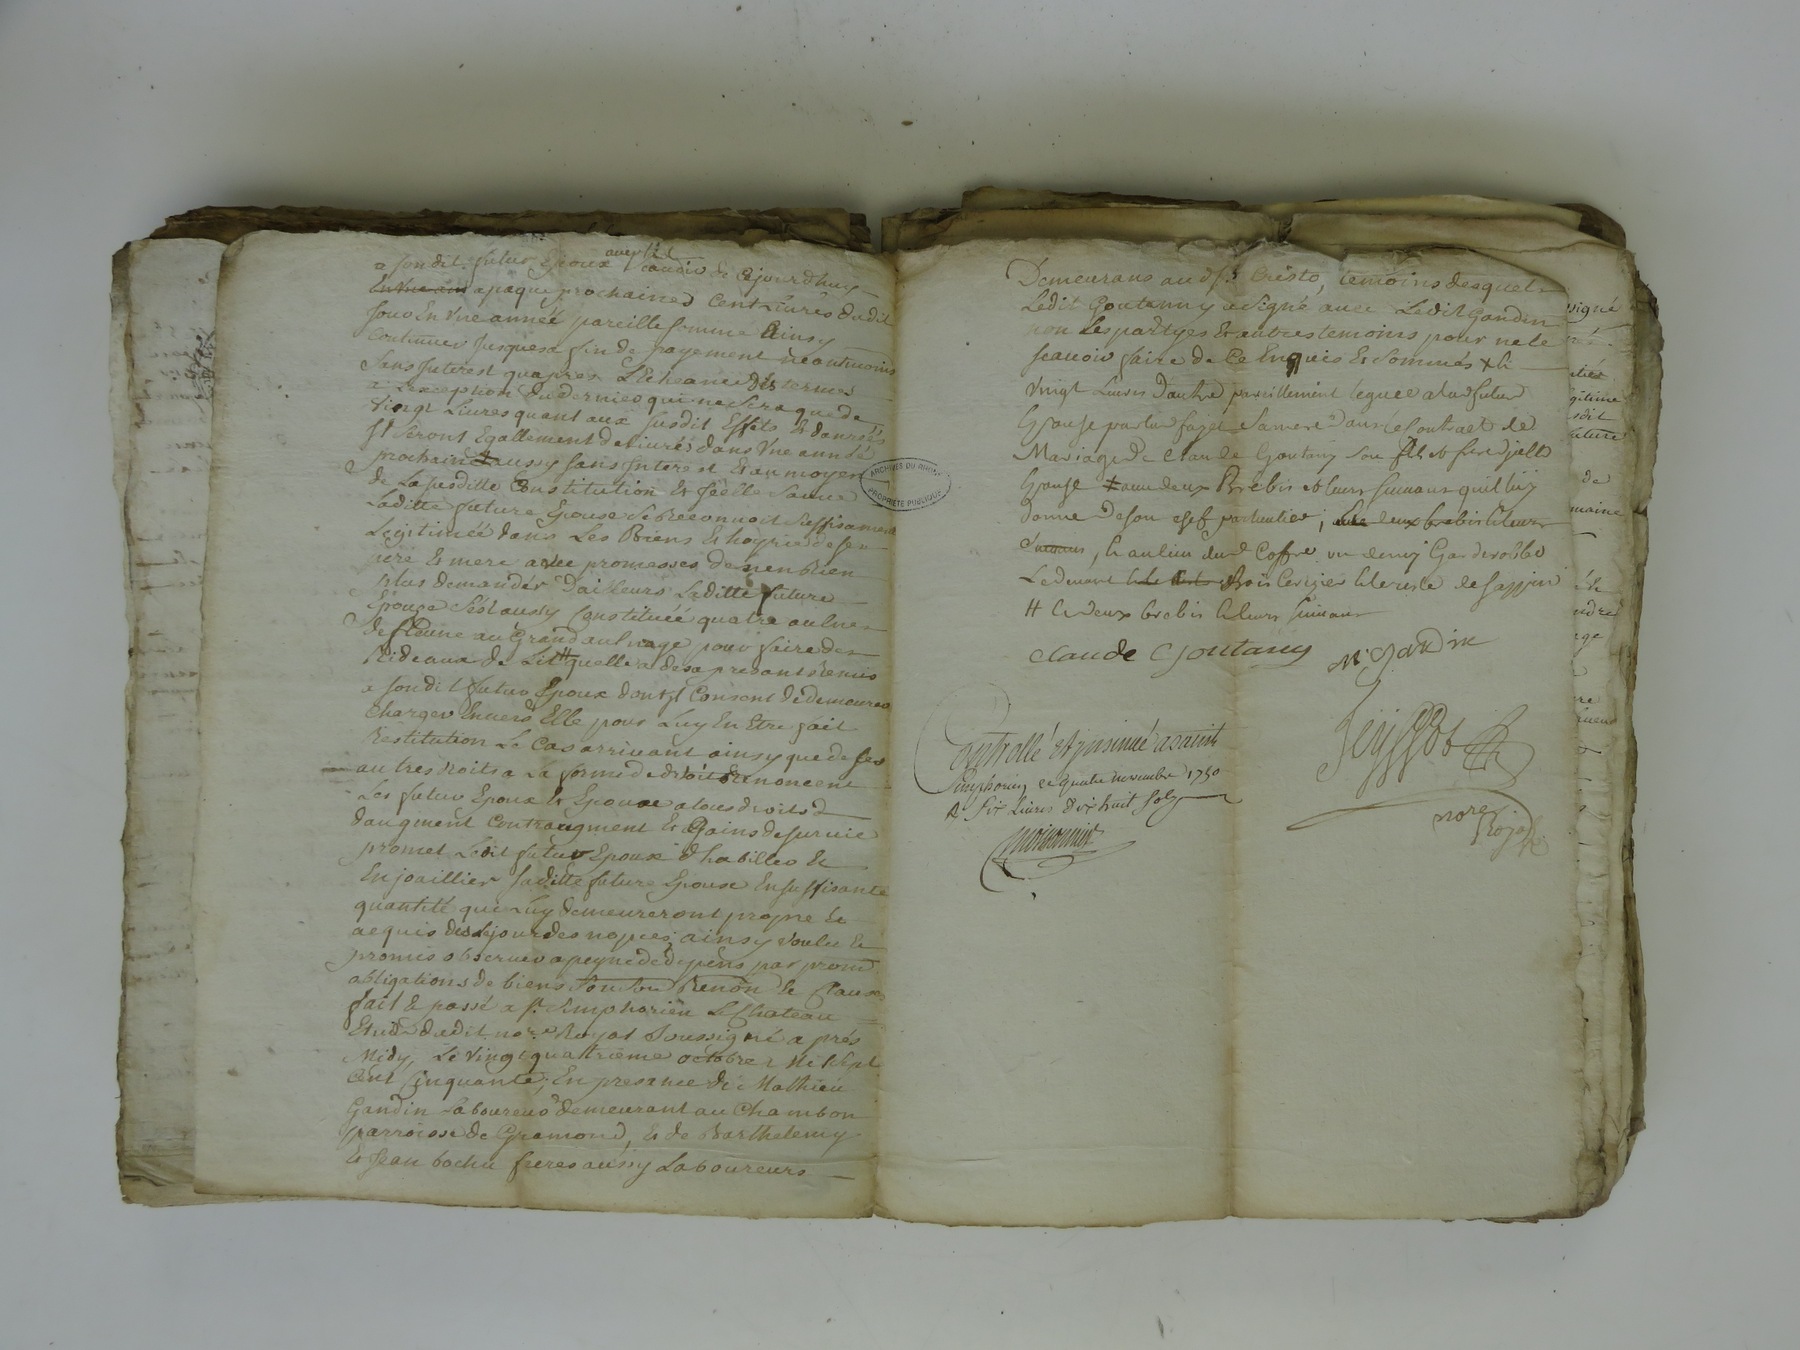 a sondit futur Epoux scavoir de Cejourdhuy
a paque prochaines Cent Livres dudit
jour En Vne année pareille somme Et ainsy
Continuer jusques a fin de payement néantmoins
sans Interest qu'apres L'Echeance des termes
a L'exception du dernier qui ne sera que de
vingt Livres quant aux susdit Effets Et danrées
Ils seront Egallement delivrés dans Vne année
prochaine aussy sans Interest Et au moyen
de La susditte Constitution Et Icelle
Laditte future Epouse se Reconnoit suffisament
Légitimée dans Les Biens Et hoyrie de ses
pere Et mere avec promesses de n'en Rien
plus demander D'ailleurs Laditte future
Epouse s'est aussy Constituée quatre aulnes
de au Grand aulnage pour faire des
Rideaux de Lit # quelle a desa presant Remis
a sondit futur Epoux dont Il Consent de demeurer
Charger Envers Elle pour Luy En Etre fait
Restitution Le Cas arrivant ainsy que de ses
autres droits a La forme de droit Renoncent
Les futur Epoux Et Epouse a tous droits
d'augment Contraugment Et Gains de survie
promet Ledit futur Epoux d'habiller Et
Enjoaillier saditte future Epouse En suffisante
quantité qui Luy demeureront propre Et
acquis des Le jour des nopces, ainsy voulu Et
promis observer a peyne de depens par prom
obligations de biens Renon Et Clauses
fait Et passé a St Simphorien Le Chateau
Etude dudit nore Royal Soussigné aprés
Midy, Le vingt quattrième octobre Mil Sept
Cent Cinquante, En presance de Mathieu
Gandin Laboureur demeurant au Chambon
parroisse de Gramond, Et de Barthelemy
Et Jean bochu freres aussy Laboureurs
ARCHIVES DU RHONE
PROPRIÉTÉ PUBLIQUE
Demeurans aud St Cristo, temoins desquels
Ledit Goutanny a signé avec Ledit Gandin
non Les partyes Et autres temoins pour ne le
scavoir faire de Ce Enquis Et Sommés Et
vingt Livres D'autre pareillement leguée a lad future
Epouse par sa mere Dans le Contract de
Mariage De Claude Goutany son fils et frere d'jelle
Epouse avec deux Brebis et leurs suivans qu'il luy
donne de son chef particulier, deux brebis Et leurs
suivans, Et au lieu dud Coffre un demy Garderobbe
Le devant Bois Cerizier Et le reste de sappin
# Et deux brebis Et leurs suivans
Claude Goutany M. Gandin
Controllé et insinué a saint
Simphorien, ce quatre novembre 1750
R. six Livres dix huit sols
nore Royal